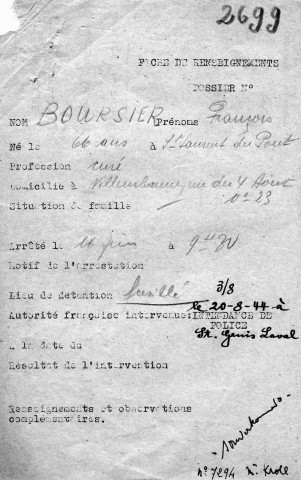 2699
FICHE DE RENSEIGNEMENTS
DOSSIER N°
NOM BOURSIER Prénoms François
Né le 66 ans à St Laurent du Pont
Profession curé
Domicilie à Villeurbanne, rue des 4 Août
n° 23
Situation de famille
Arrêté le 16 juin à 9H30
Motif de l'arrestation
3/8
Lieu de detention fusillé le 20-8-44 à
Autorité française intervenue: INTENDANCE DE
POLICE
St. Genis Laval
A la date du
Résultat de l'intervention
Renseignements et observations
complémentaires.
N° 7294 M. Krole